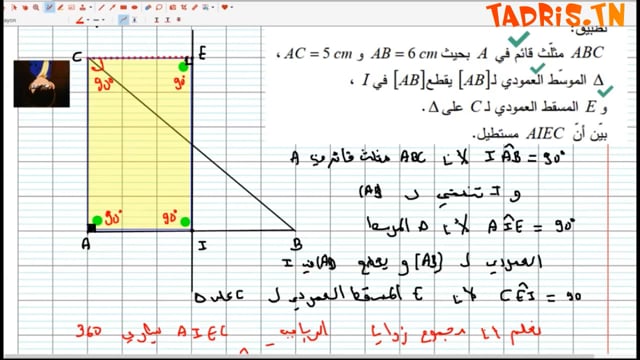 TADRIS.TN
تطبيق:
ABC مثلّث قائم في A بحيث AB = 6 cm و AC = 5 cm ،
Δ الموسّط العمودي لـ [AB] يقطع [AB] في I ،
و E المسقط العمودي لـ C على Δ.
بيّن أنّ AIEC مستطيل.
C E
90° 90°
90° 90°
A I B
IÂB = 90° لأن ABC مثلث قائم في A
و I تنتمي لـ (AB)
AÎE = 90° لأن Δ الموسط
العمودي لـ [AB] و يقطع (AB) في I
CÊI = 90 لأن E المسقط العمودي لـ C على Δ
نعلم أن مجموع زوايا الرباعي AIEC يساوي 360